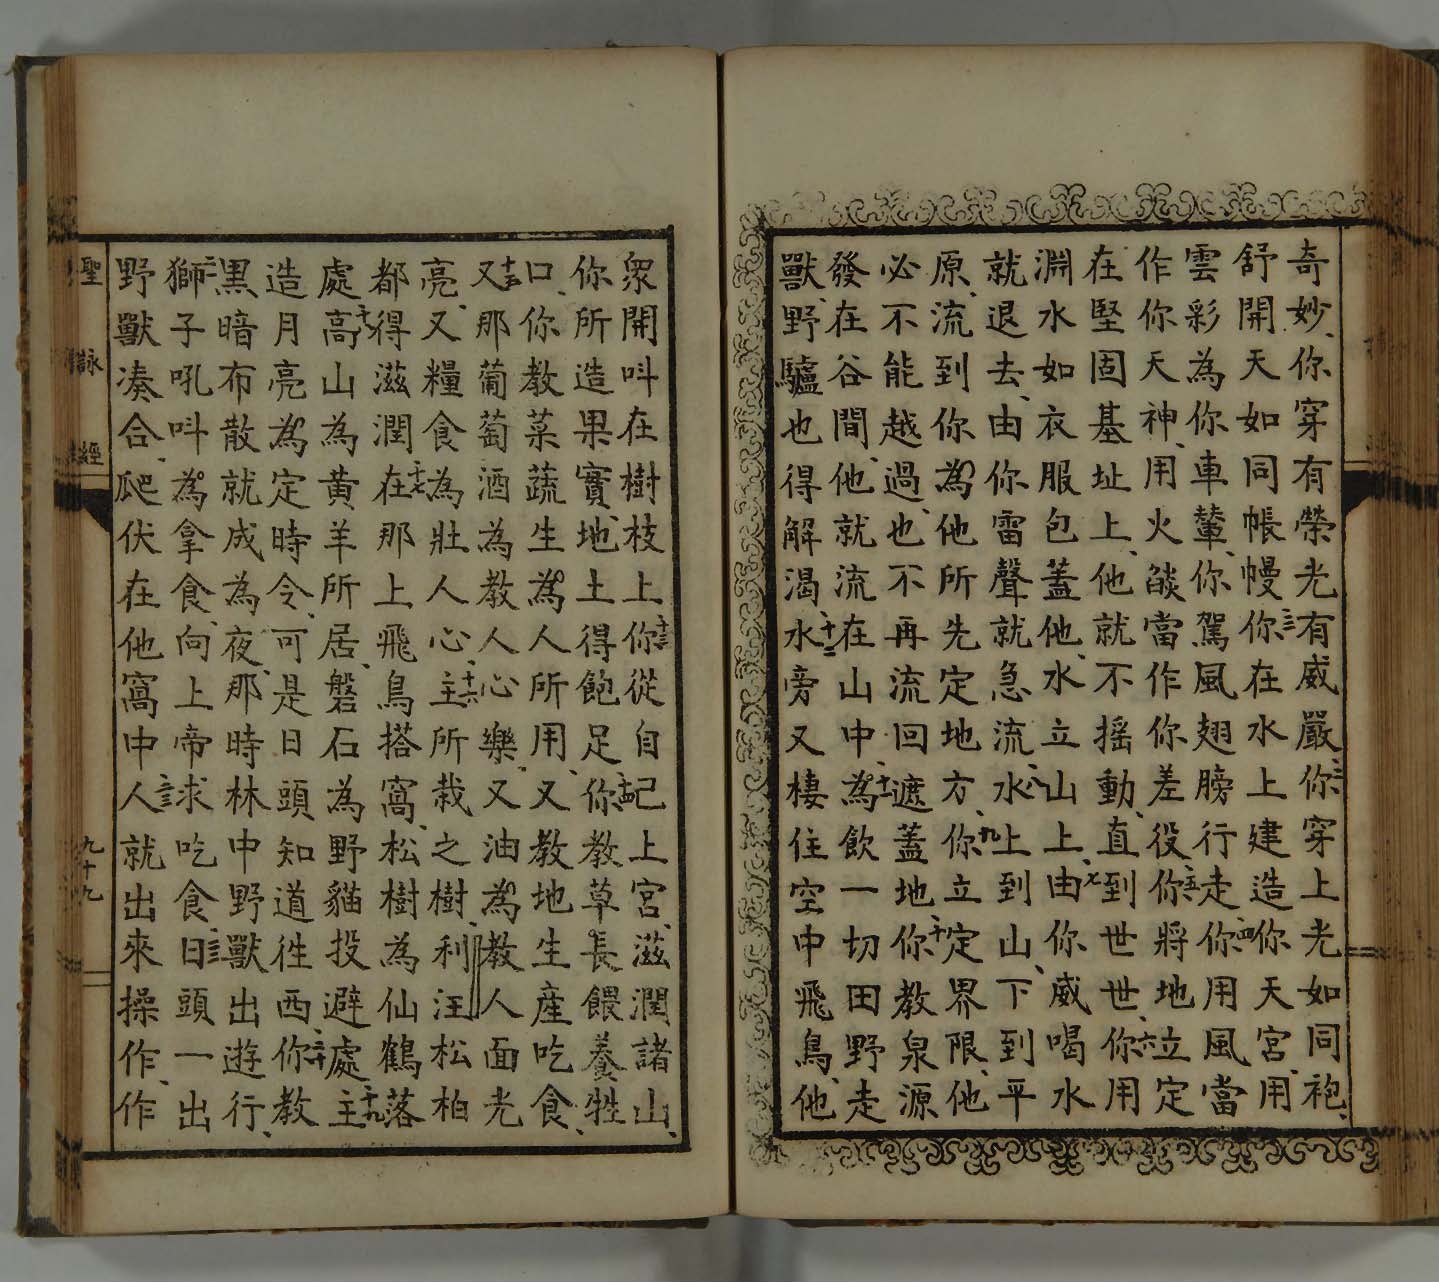 奇妙、你穿有榮光有威嚴、二你穿上光如同袍、
舒開天如同帳幔、三你在水上建造你天宮、用
雲彩為你車輦、你駕風翅膀行走、四你用風當
作你天神、用火燄當作你差役、五你將地立定
在堅固基址上、他就不搖動、直到世世、六你用
淵水如衣服包蓋他、水立山上、七由你威喝水
就退去、由你雷聲就急流、八水上到山、下到平
原、流到你為他所先定地方、九你立定界限、他
必不能越過、也不再流回遮蓋地、十你教泉源
發在谷間、他就流在山中、十一為飲一切田野走
獸、野驢也得解渴、十二水旁又棲住空中飛鳥、他
衆開呌在樹枝上、十三你從自己上宮、滋潤諸山、
你所造果實、地土得飽足、十四你教草長餵養牲
口、你教菜蔬生為人所用、又教地生產吃食、
十五又那葡萄酒為教人心樂、又油為教人面光
亮、又糧食為壯人心、十六主所栽之樹、利汪松柏
都得滋潤、十七在那上飛鳥搭窩、松樹為仙鶴落
處、十八高山為黃羊所居、磐石為野貓投避處、十九主
造月亮為定時令、可是日頭知道徃西、二十你教
黑暗布散就成為夜、那時林中野獸出遊行、
二一獅子吼呌為拿食、向上帝求吃食、二二日頭一出
野獸湊合、爬伏在他窩中、二三人就出來操作、作
聖詠經
九十九